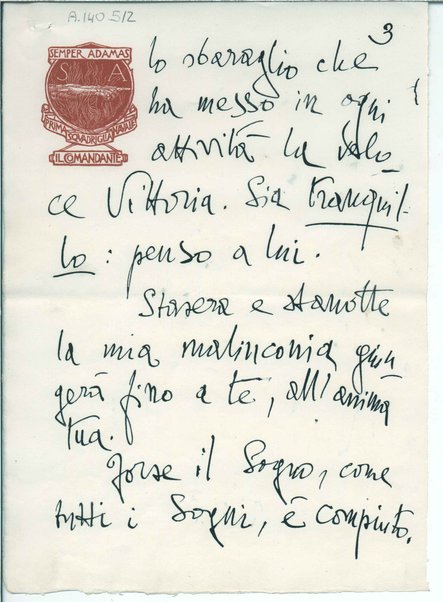 A.140.5/2
3
SEMPER ADAMAS
S A
PRIMA SQUADRIGLIA NAVALE
IL COMANDANTE
lo sbaraglio che
ha messo in ogni
attività la velo
ce Vittoria. Sia tranquil-
lo : penso a lui.
Stasera e stanotte
la mia malinconia giun
gerà fino a te, all'anima
tua.
Forse il Sogno, come
tutti i Sogni, è compiuto.